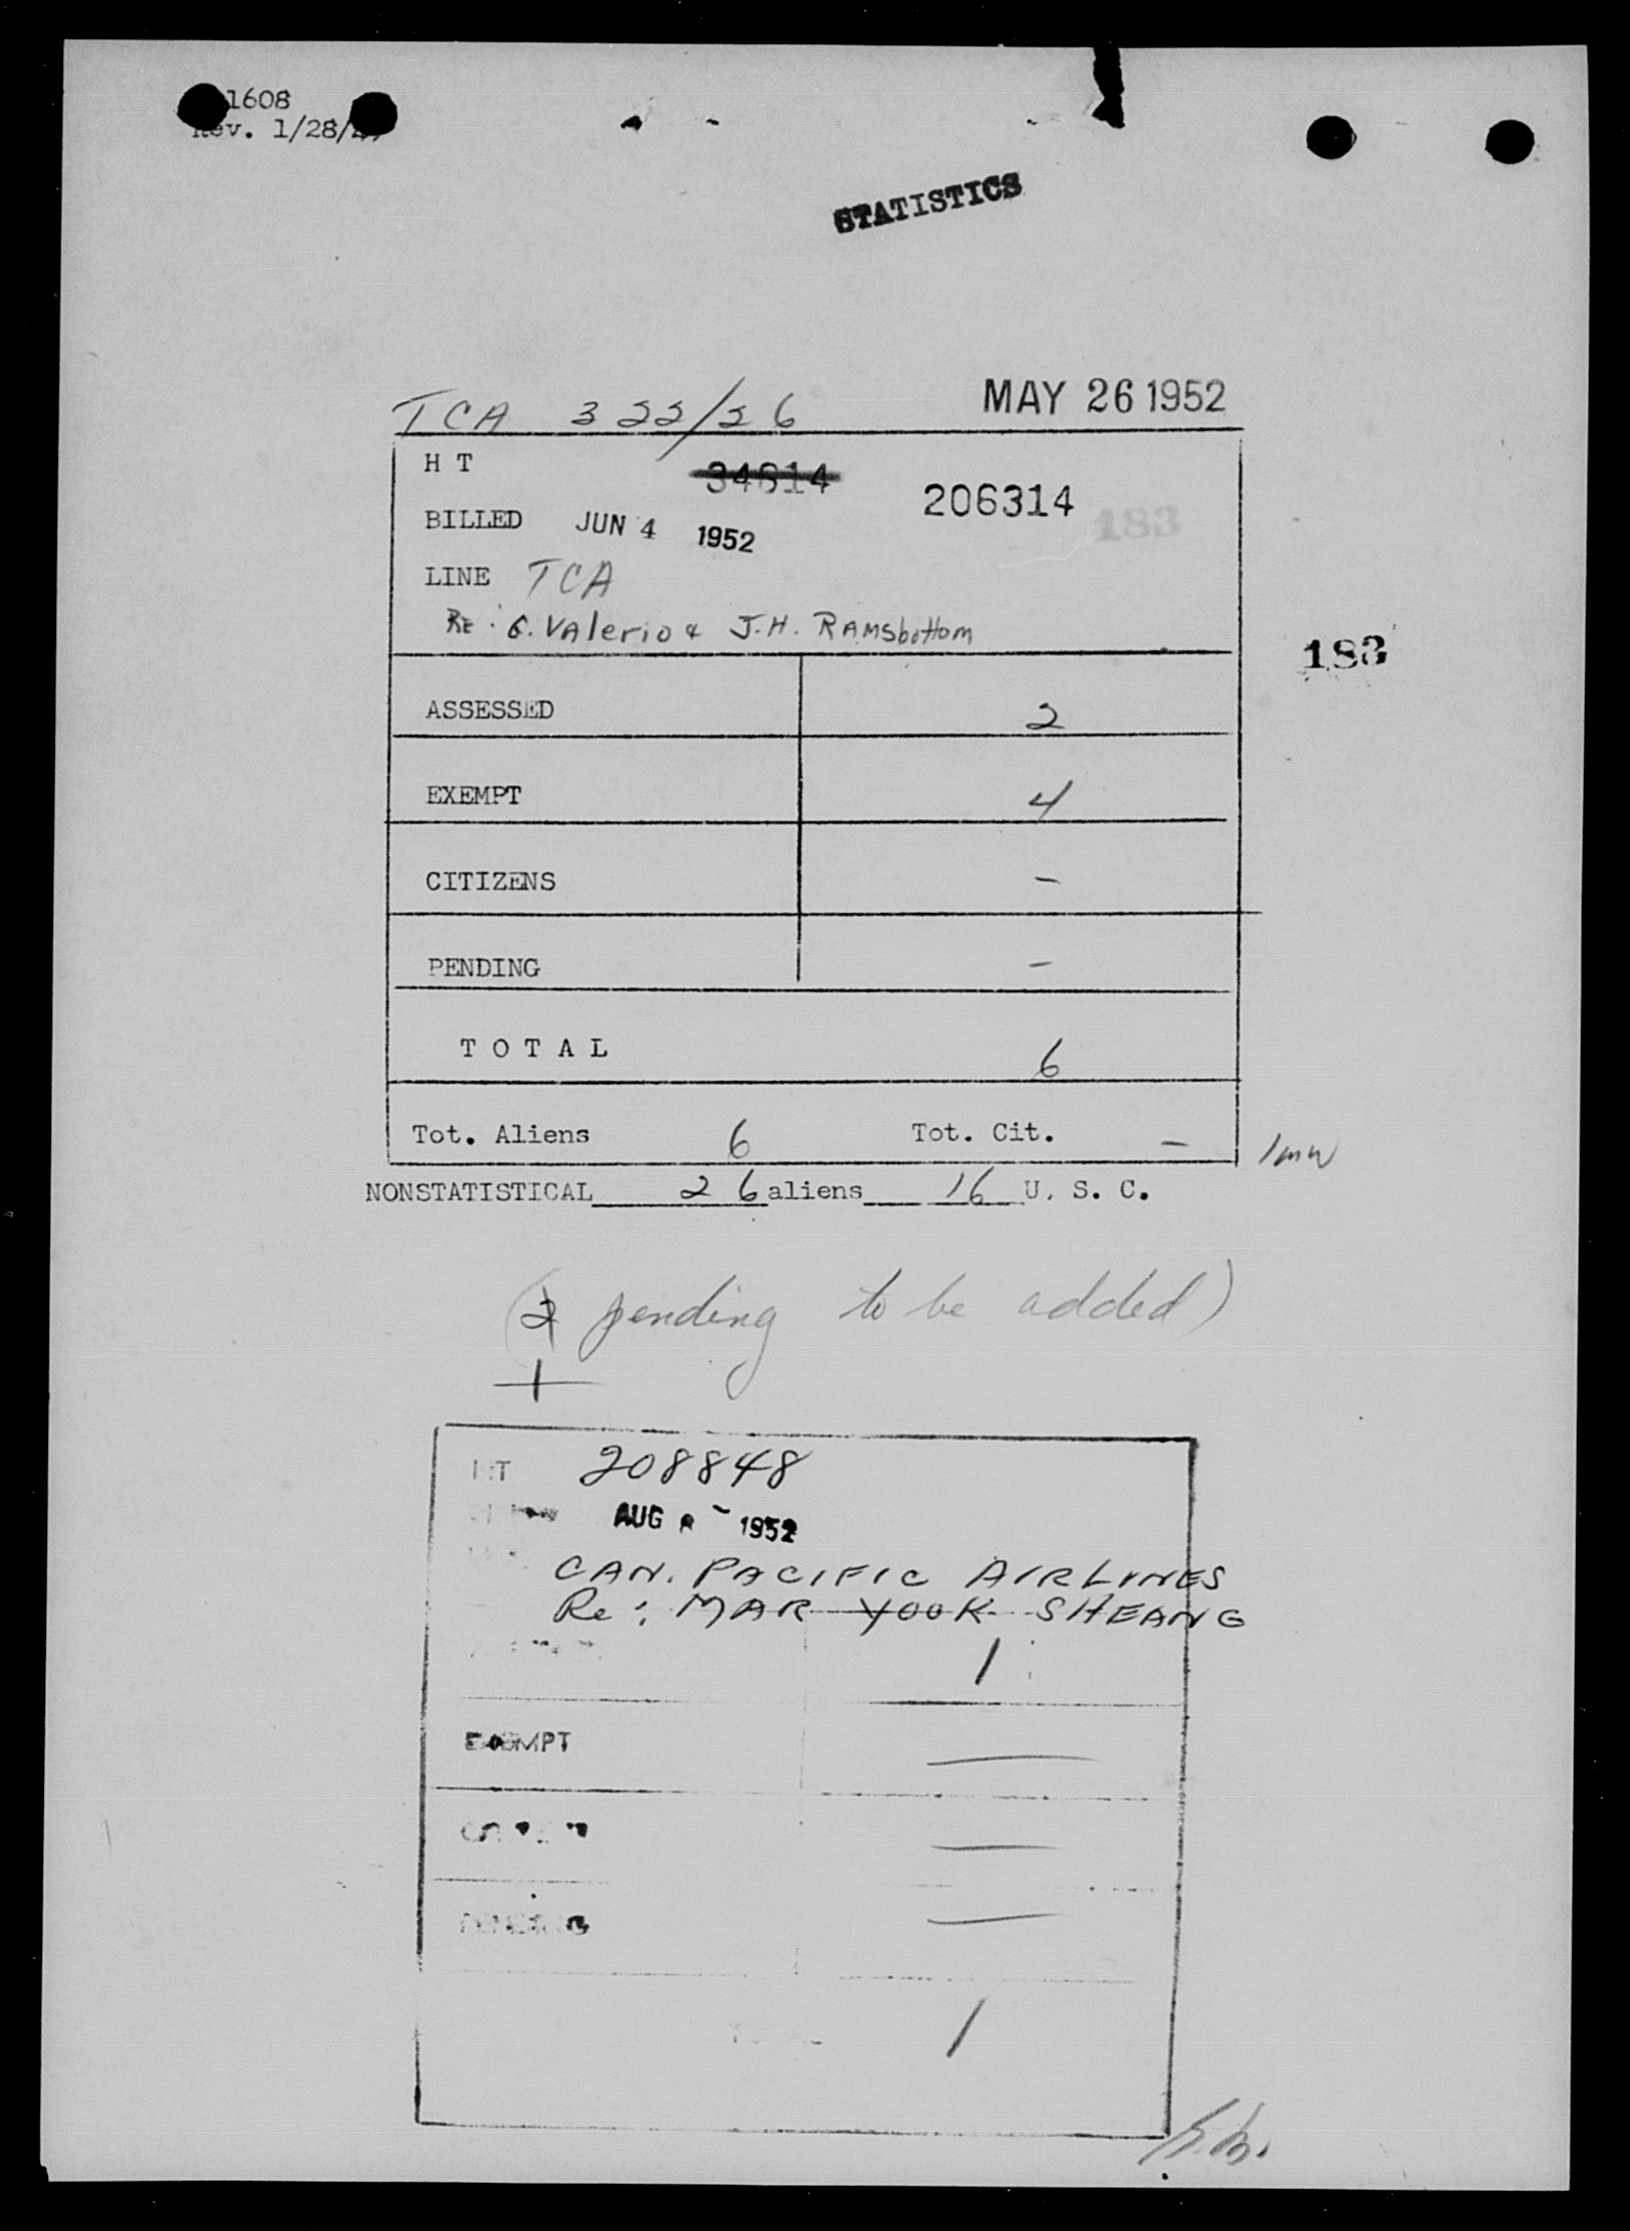 1608
Rev. 1/28/
STATISTICS
TCA 322/26 MAY 26 1952
H T 34614 206314
183
BILLED JUN 4 1952
LINE TCA
RE: G. Valerio & J.H. RAMSbottom
183
ASSESSED 2
EXEMPT 4
CITIZENS -
PENDING -
T O T A L 6
Tot. Aliens 6 Tot. Cit. -
NONSTATISTICAL 26 aliens 16 U. S. C.
(2 pending to be added)
1
HT 208848
AUG 1952
CAN. PACIFIC AIRLINES
Re: MAR YOOK SHEANG
1
EXEMPT —
—
PENDING —
1